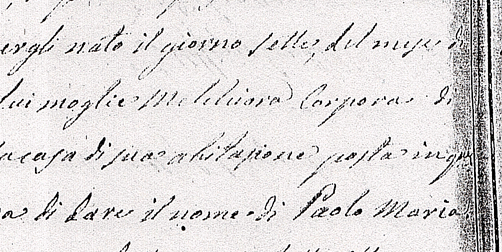 ergli nato il giorno sette, del mese d
lui moglie Melchiora Corpora di
la casa di sua abitazione posta in qu
a di dare il nome di Paolo Maria